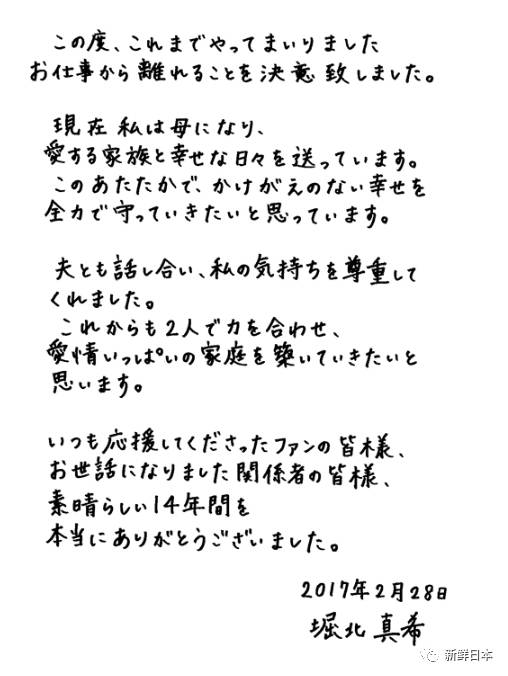 この度、これまでやってまいりました
お仕事から離れることを決意致しました。
現在私は母になり、
愛する家族と幸せな日々を送っています。
このあたたかで、かけがえのない幸せを
全力で守っていきたいと思っています。
夫とも話し合い、私の気持ちを尊重して
くれました。
これからも2人で力を合わせ、
愛情いっぱいの家庭を築いていきたいと
思います。
いつも応援してくださったファンの皆様、
お世話になりました関係者の皆様、
素晴らしい14年間を
本当にありがとうございました。
2017年2月28日
堀北真希
新鲜日本